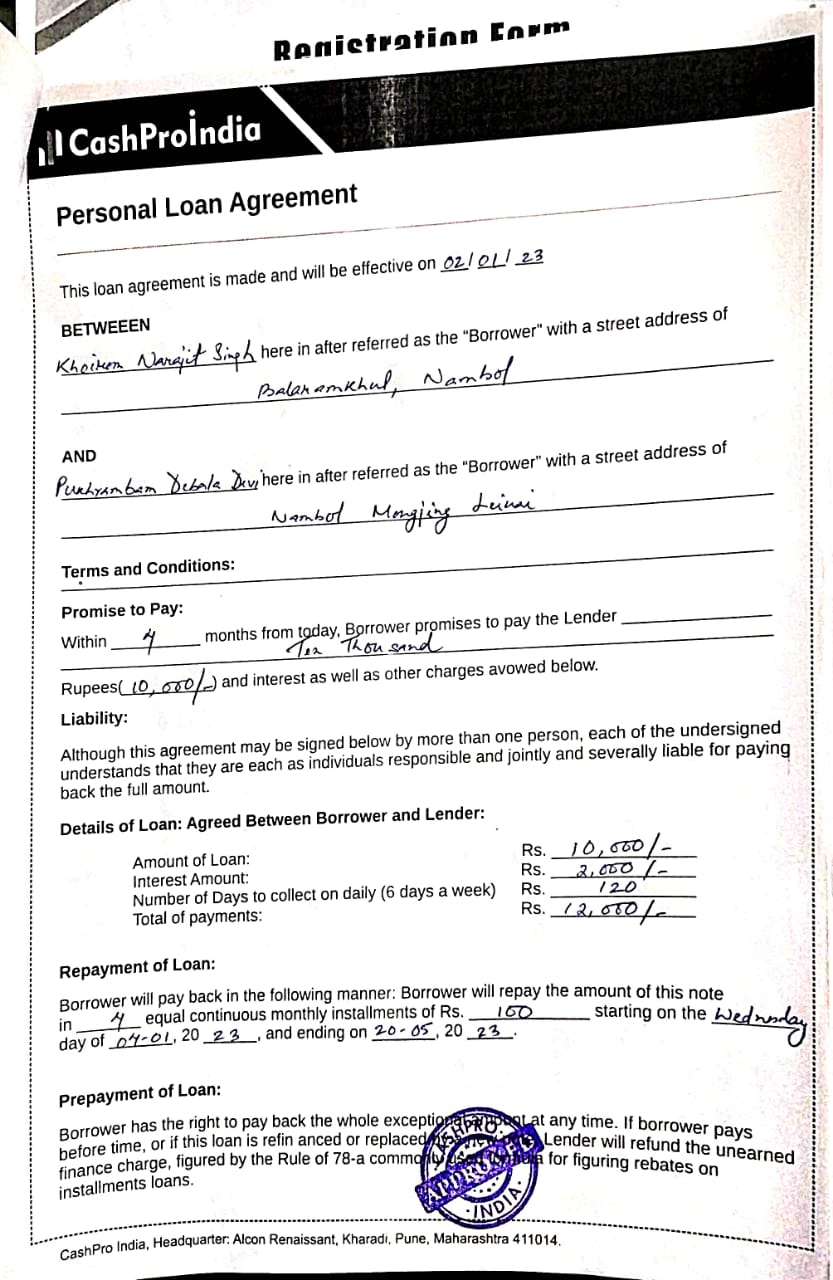 Registration Form
CashProIndia
Personal Loan Agreement
This loan agreement is made and will be effective on 02/01/23
BETWEEEN
Narajit Singh here in after referred as the “Borrower” with a street address of
Nambol
AND
Debala Devi here in after referred as the “Borrower” with a street address of
Nambol Mongjing Leinai
Terms and Conditions:
Promise to Pay:
Within 4 months from today, Borrower promises to pay the Lender
Ten Thousand
Rupees(10,000/-) and interest as well as other charges avowed below.
Liability:
Although this agreement may be signed below by more than one person, each of the undersigned
understands that they are each as individuals responsible and jointly and severally liable for paying
back the full amount.
Details of Loan: Agreed Between Borrower and Lender:
Amount of Loan: Rs. 10,000/-
Interest Amount: Rs. 2,000/-
Number of Days to collect on daily (6 days a week) Rs. 120
Total of payments: Rs. 12,000/-
Repayment of Loan:
Borrower will pay back in the following manner: Borrower will repay the amount of this note
in 4 equal continuous monthly installments of Rs. 100 starting on the Wednesday
day of 04-01, 20 23, and ending on 20-05, 20 23.
Prepayment of Loan:
Borrower has the right to pay back the whole exceptional amount at any time. If borrower pays
before time, or if this loan is refin anced or replaced Lender will refund the unearned
finance charge, figured by the Rule of 78-a commonly used for figuring rebates on
installments loans.
CASHPRO
APPROVED
INDIA
CashPro India, Headquarter: Alcon Renaissant, Kharadi, Pune, Maharashtra 411014.